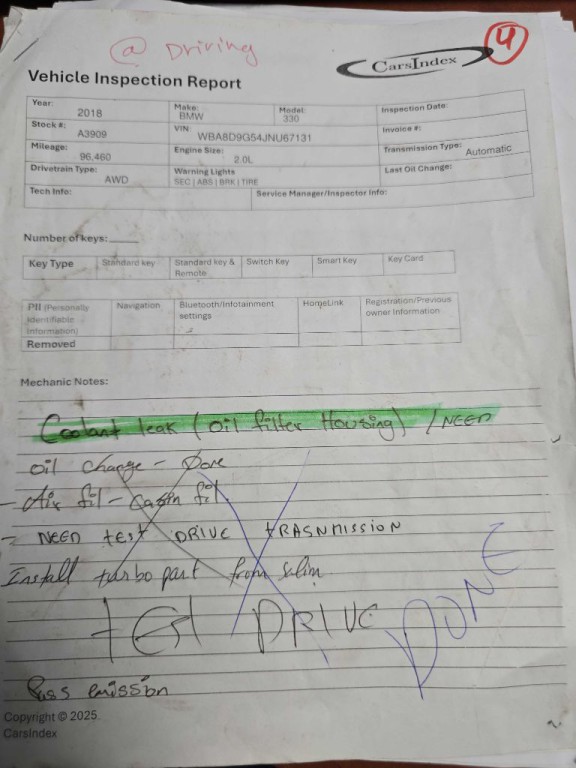 @ Driving
4
CarsIndex
Vehicle Inspection Report
Year: 2018 Make: BMW Model: 330 Inspection Date:
Stock #: A3909 VIN: WBA8D9G54JNU67131 Invoice #:
Mileage: 96,460 Engine Size: 2.0L Transmission Type: Automatic
Drivetrain Type: AWD Warning Lights SEC | ABS | BRK | TIRE Last Oil Change:
Tech Info: Service Manager/Inspector Info:
Number of keys:
Key Type Standard key Standard key & Remote Switch Key Smart Key Key Card
PII (Personally Identifiable Information) Navigation Bluetooth/Infotainment settings HomeLink Registration/Previous owner Information
Removed
Mechanic Notes:
Coolant leak (oil filter Housing) / NEED
oil change - Done
- Air fil - Cabin fil.
- NEED test DRIVE tRASNMISSION
Install turbo part from Salim
tEst DRIVE
DONE
Pass emission
Copyright © 2025.
CarsIndex